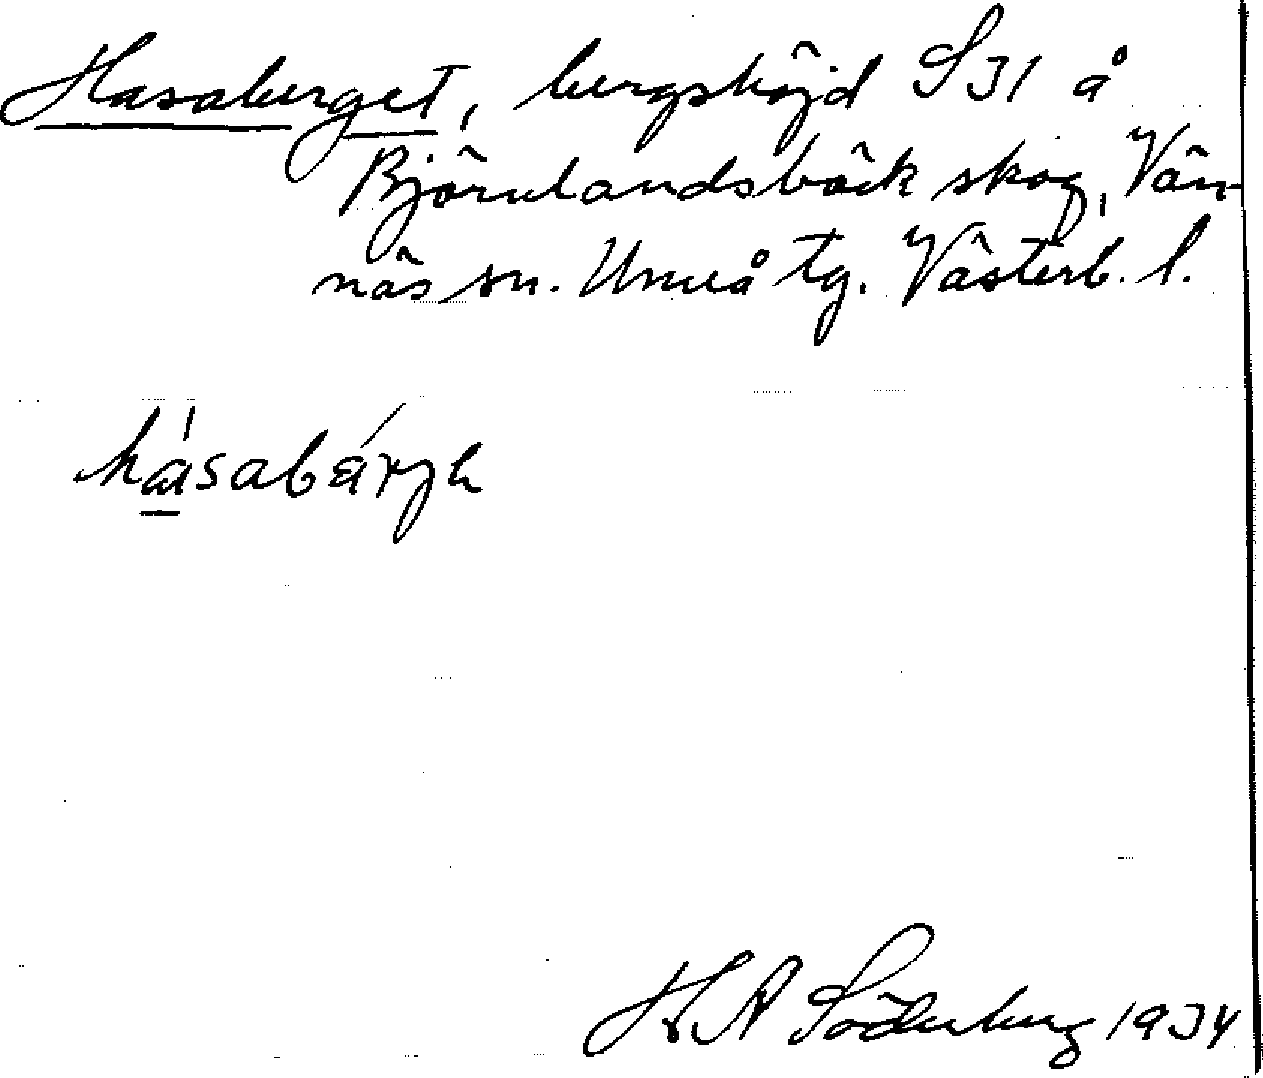 Hasaberget, bergshöjd S31 å
Björnlandsbäck skog, Vän-
näs sn. Umeå tg. Västerb. l.
H A Söderberg 1934